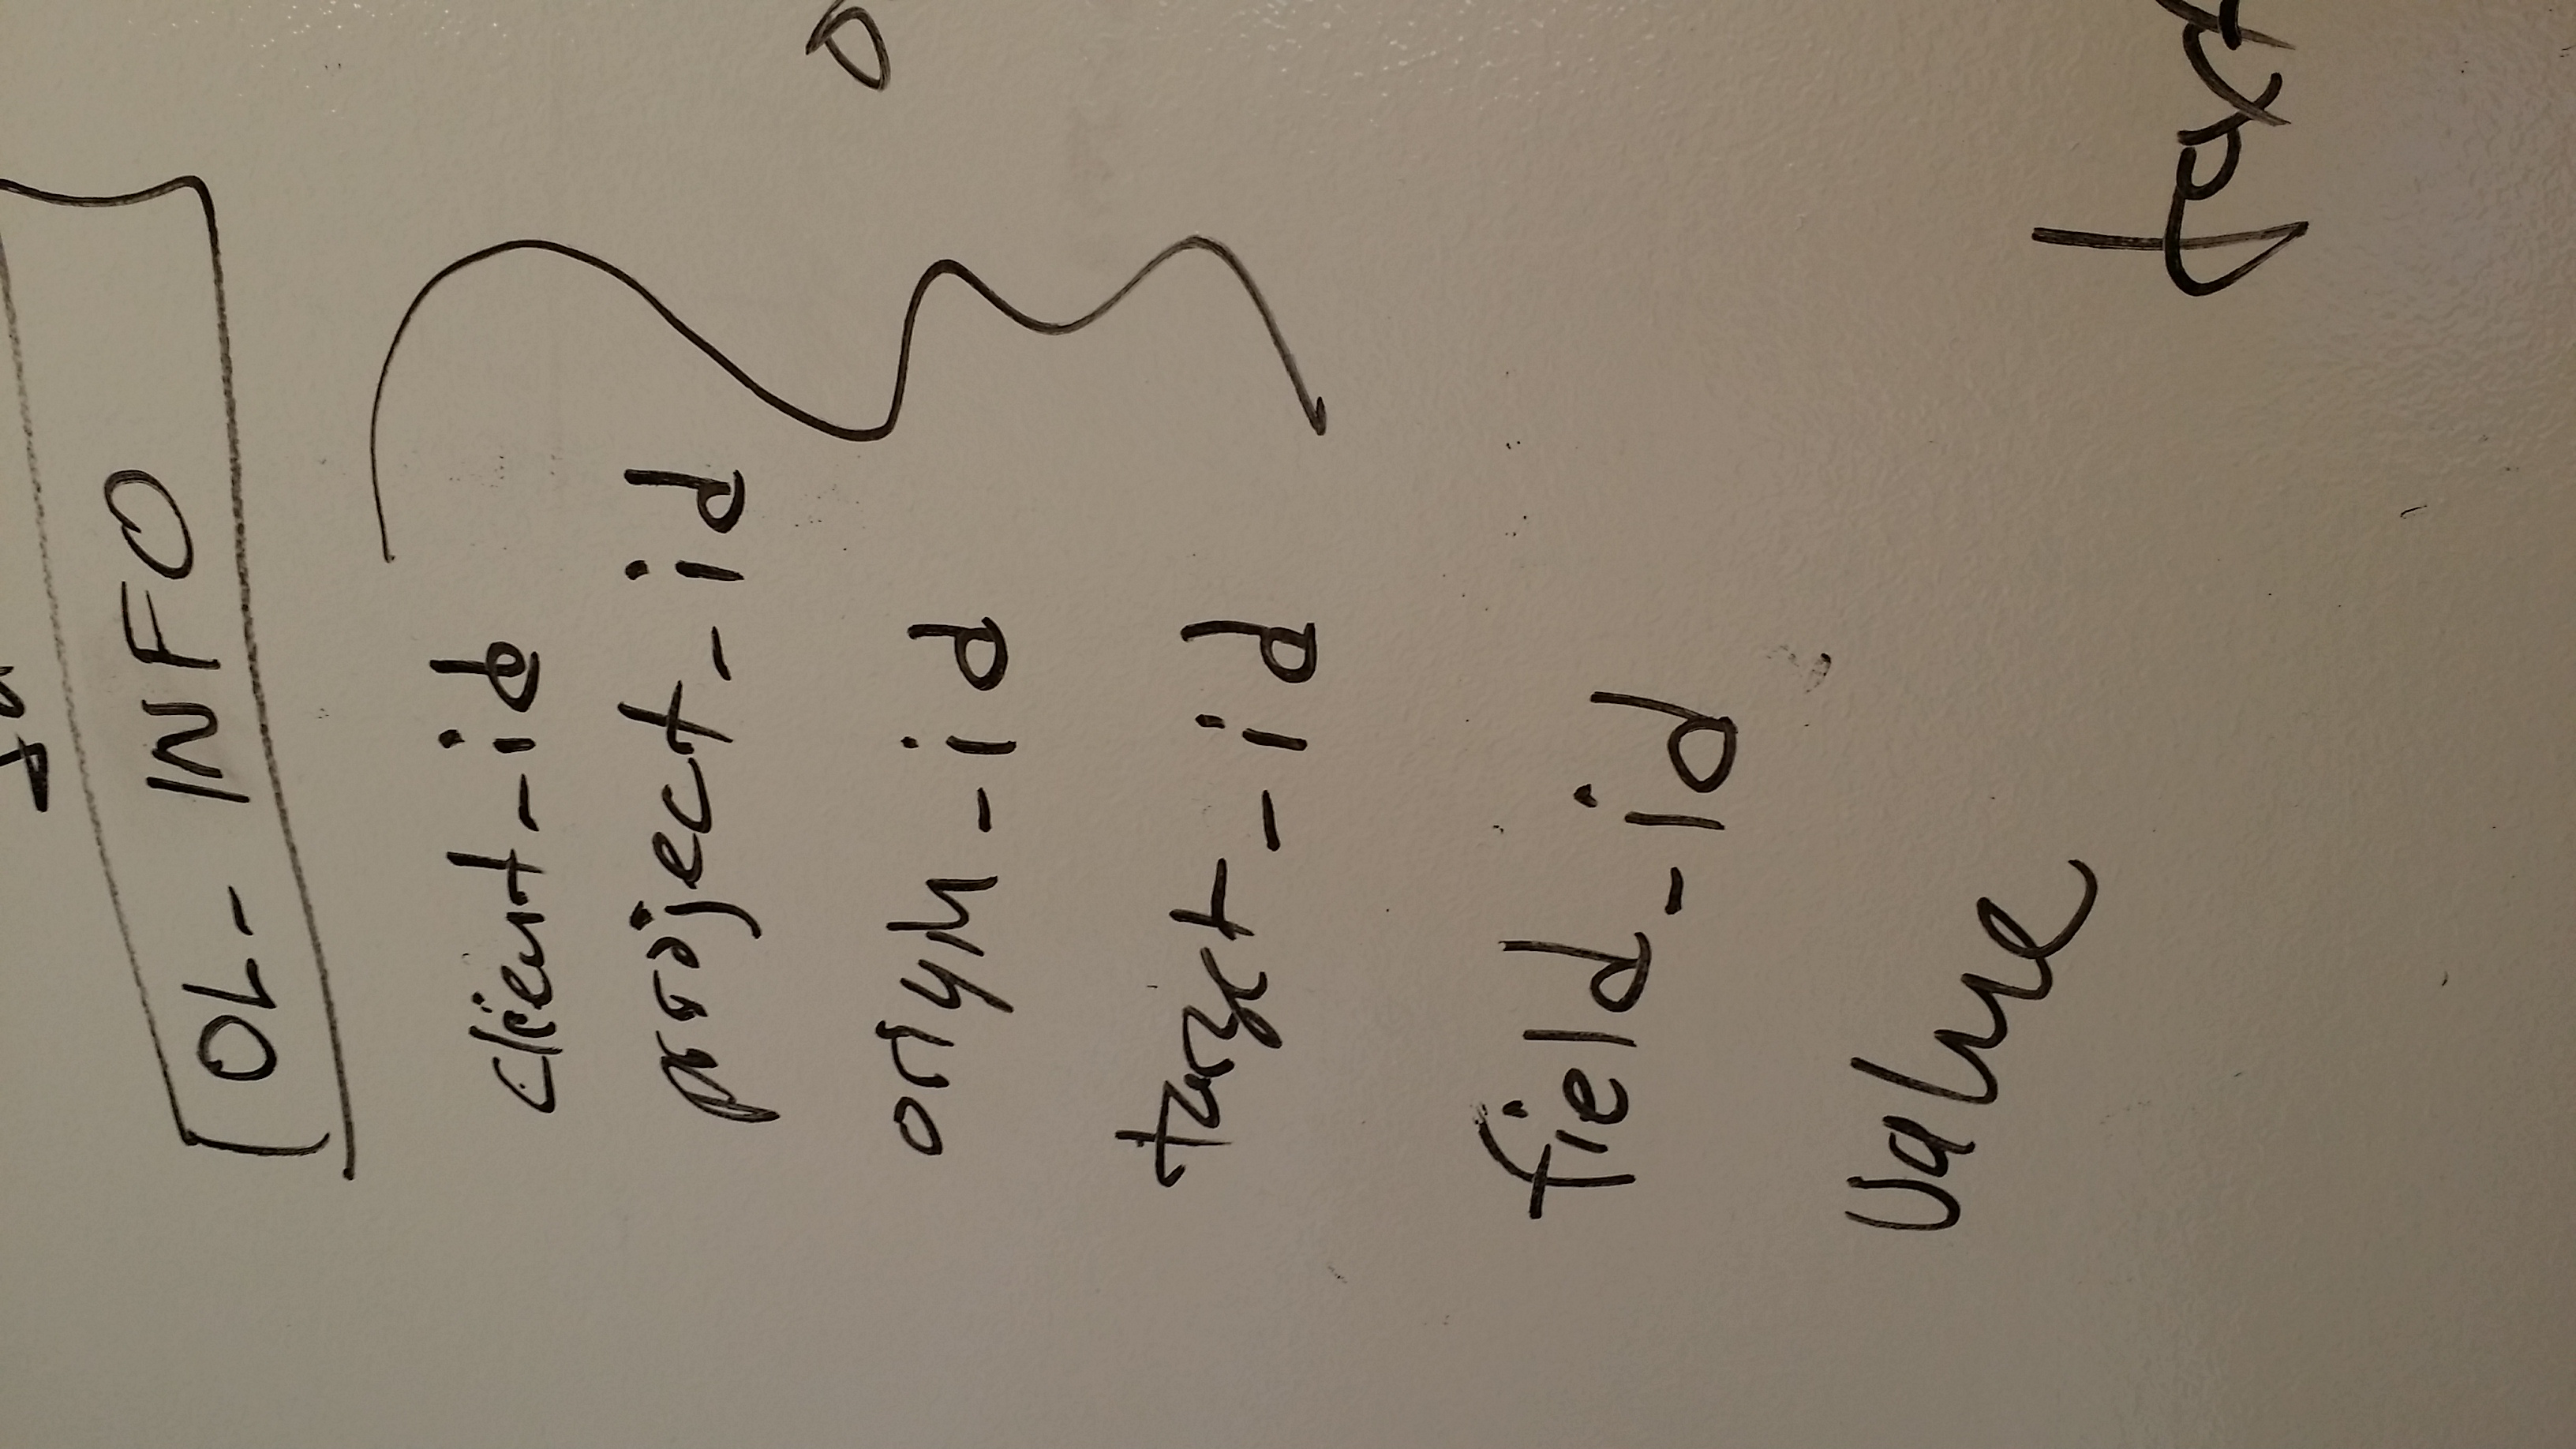 OL- INFO
client-id
project-id
origin-id
target-id
field-id
value
text